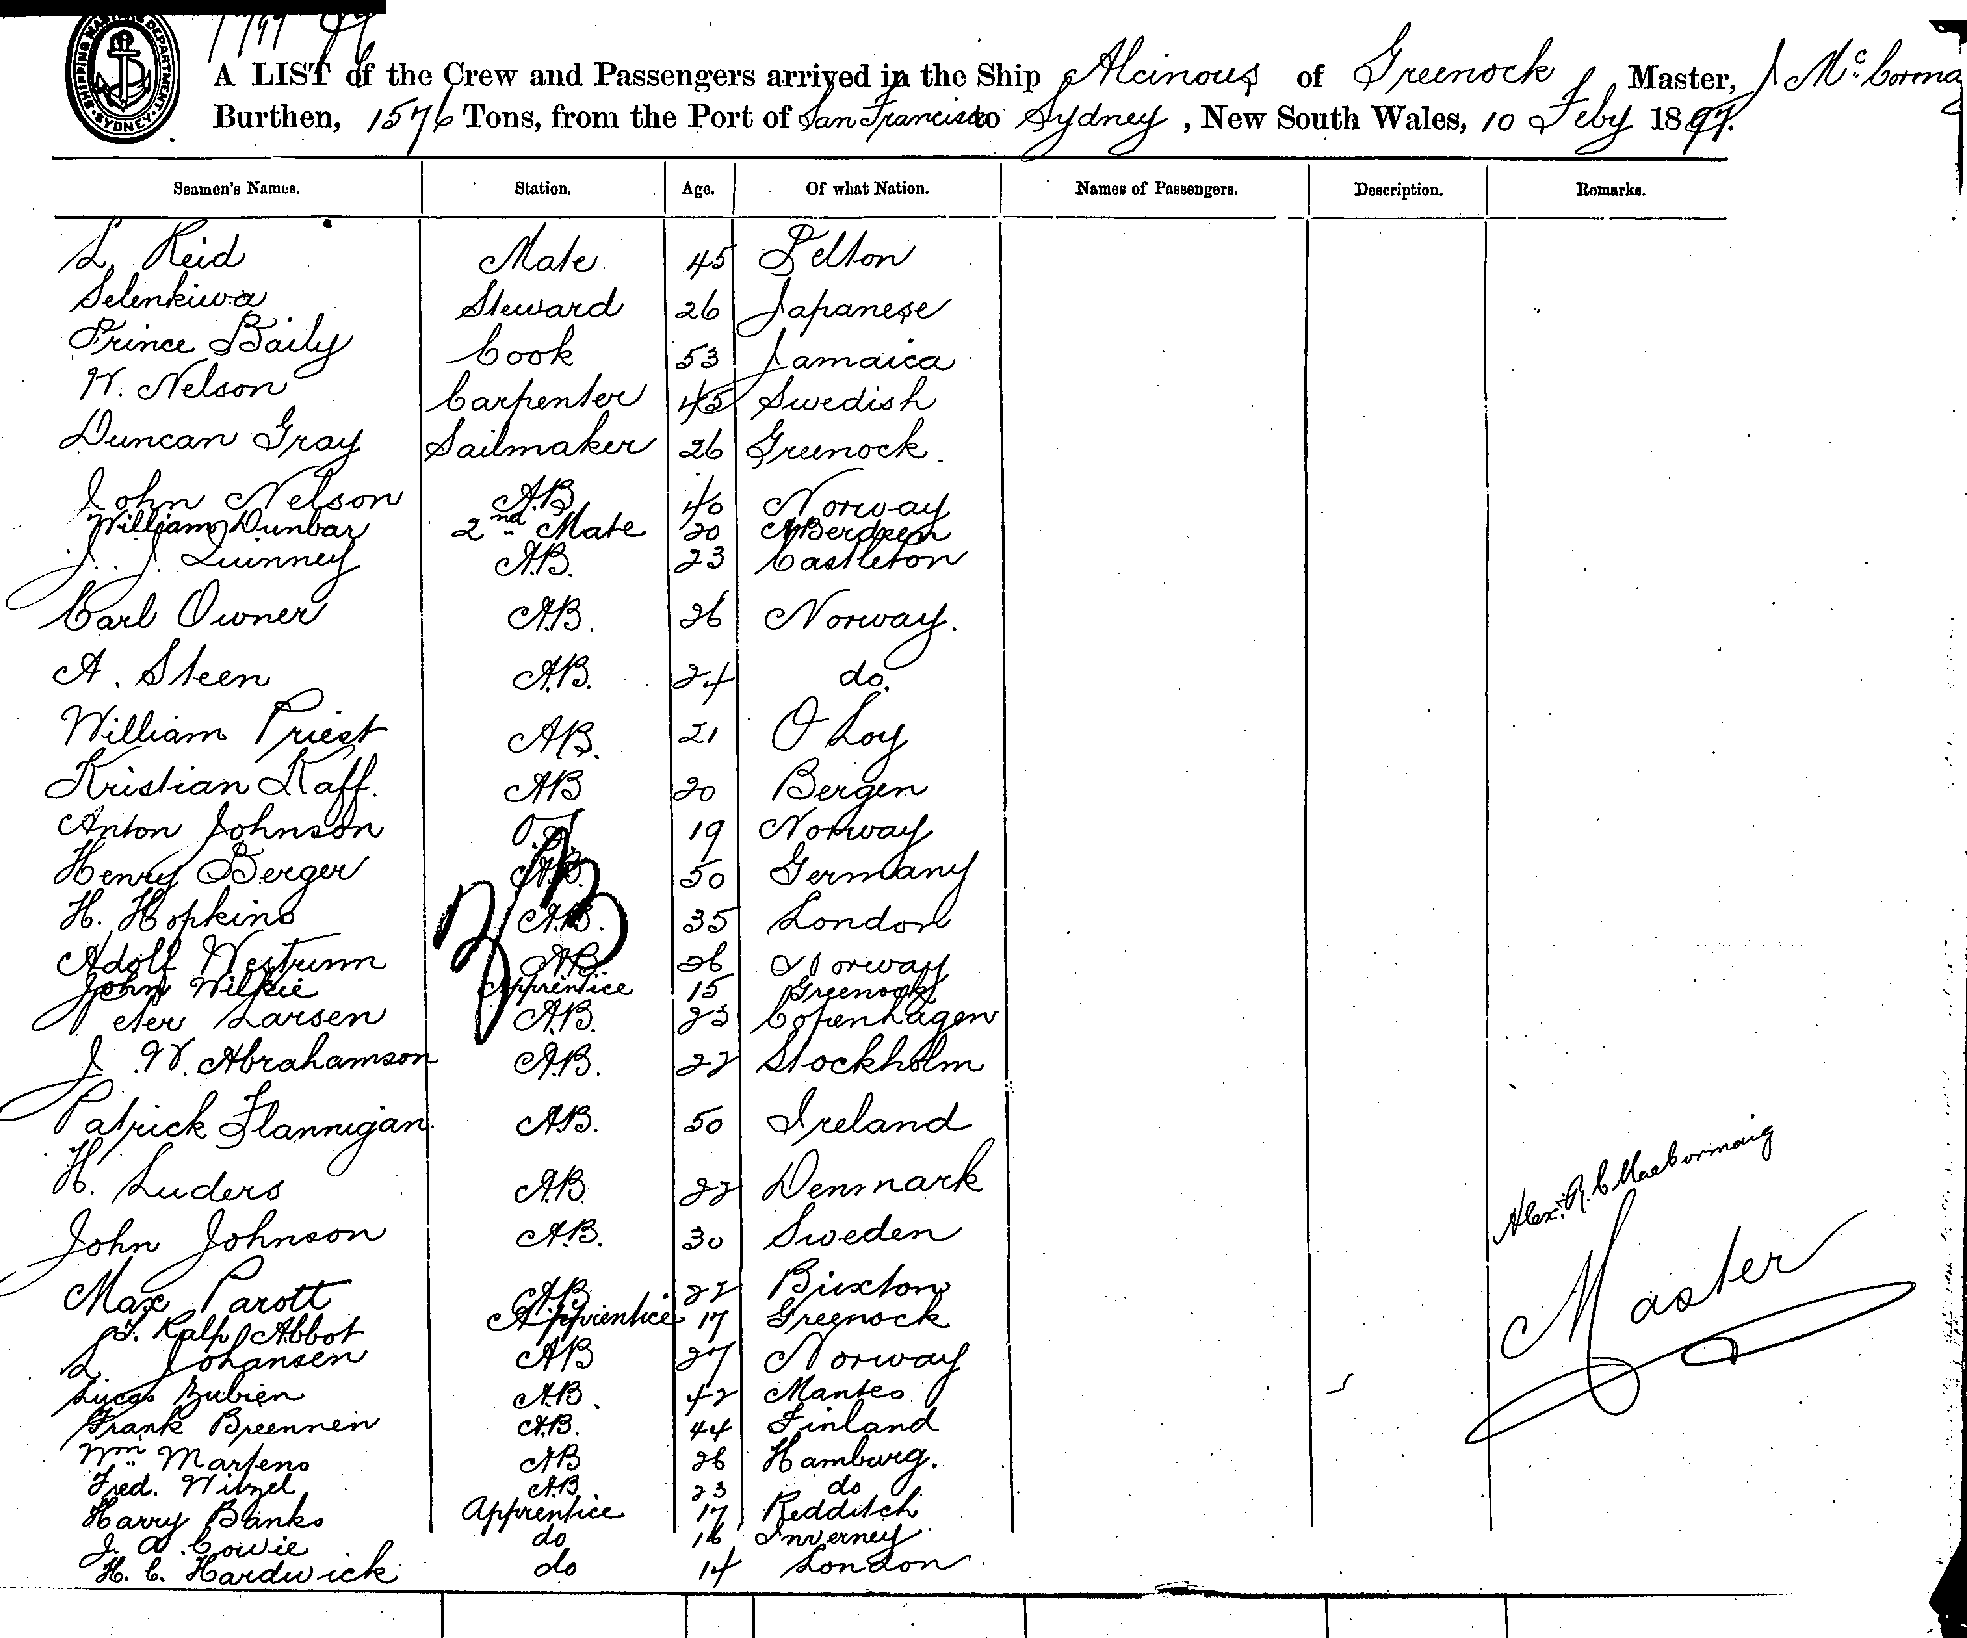 SHIPPING MASTERS DEPARTMENT SYDNEY
A LIST of the Crew and Passengers arrived in the Ship Alcinous of Greenock Master, J McCorma
Burthen, 1576 Tons, from the Port of San Francisco to Sydney, New South Wales, 10 Feby 1897.
Seamen's Names. Station. Age. Of what Nation. Names of Passengers. Description. Remarks.
L. Reid Mate 45 Felton
Selenkiwa Steward 26 Japanese
Prince Baily Cook 53 Jamaica
W. Nelson Carpenter 45 Swedish
Duncan Gray Sailmaker 26 Greenock.
John Nelson A.B 40 Norway
William Dunbar 2nd Mate 20 Aberdeen
J. J. Quinney A.B. 23 Castleton
Carl Owner A.B. 26 Norway.
A. Steen A.B. 24 do.
William Priest A.B. 21
Kristian Kaff. A.B 20 Bergen
Anton Johnson O.S 19 Norway
Henry Berger A.B. 50 Germany
H. Hopkins A.B. 35 London
Adolf Westrum A.B 26 Norway
John Wilkie Apprentice 15 Greenock
Peter Larsen A.B. 23 Copenhagen
J. W. Abrahamson A.B. 22 Stockholm
Patrick Flannigan A.B. 50 Ireland
H. Luders A.B. 22 Denmark
John Johnson A.B. 30 Sweden
Max Parott A.B 22 Buxton
T. Ralph Abbot Apprentice 17 Greenock
L. Johansen A.B 27 Norway
Lucas Zubien A.B. 42 Mantes
Frank Breennein A.B. 44 Finland
Wm Martens A.B 26 Hamburg.
Fred. Witzel A.B 23 do
Harry Banks Apprentice 17 Redditch
J. A. Cowie do 16 Inverney
H. C. Hardwick do 14 London
Alex. R. C. MacCormaig
Master